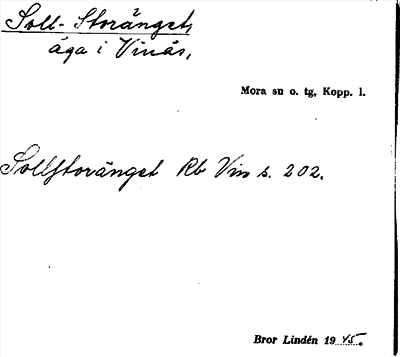 Soll-Storänget,
äga i Vinäs.
Mora sn o. tg, Kopp. l.
Sollstoränget Rb Vin s. 202.
Bror Lindén 19 45.